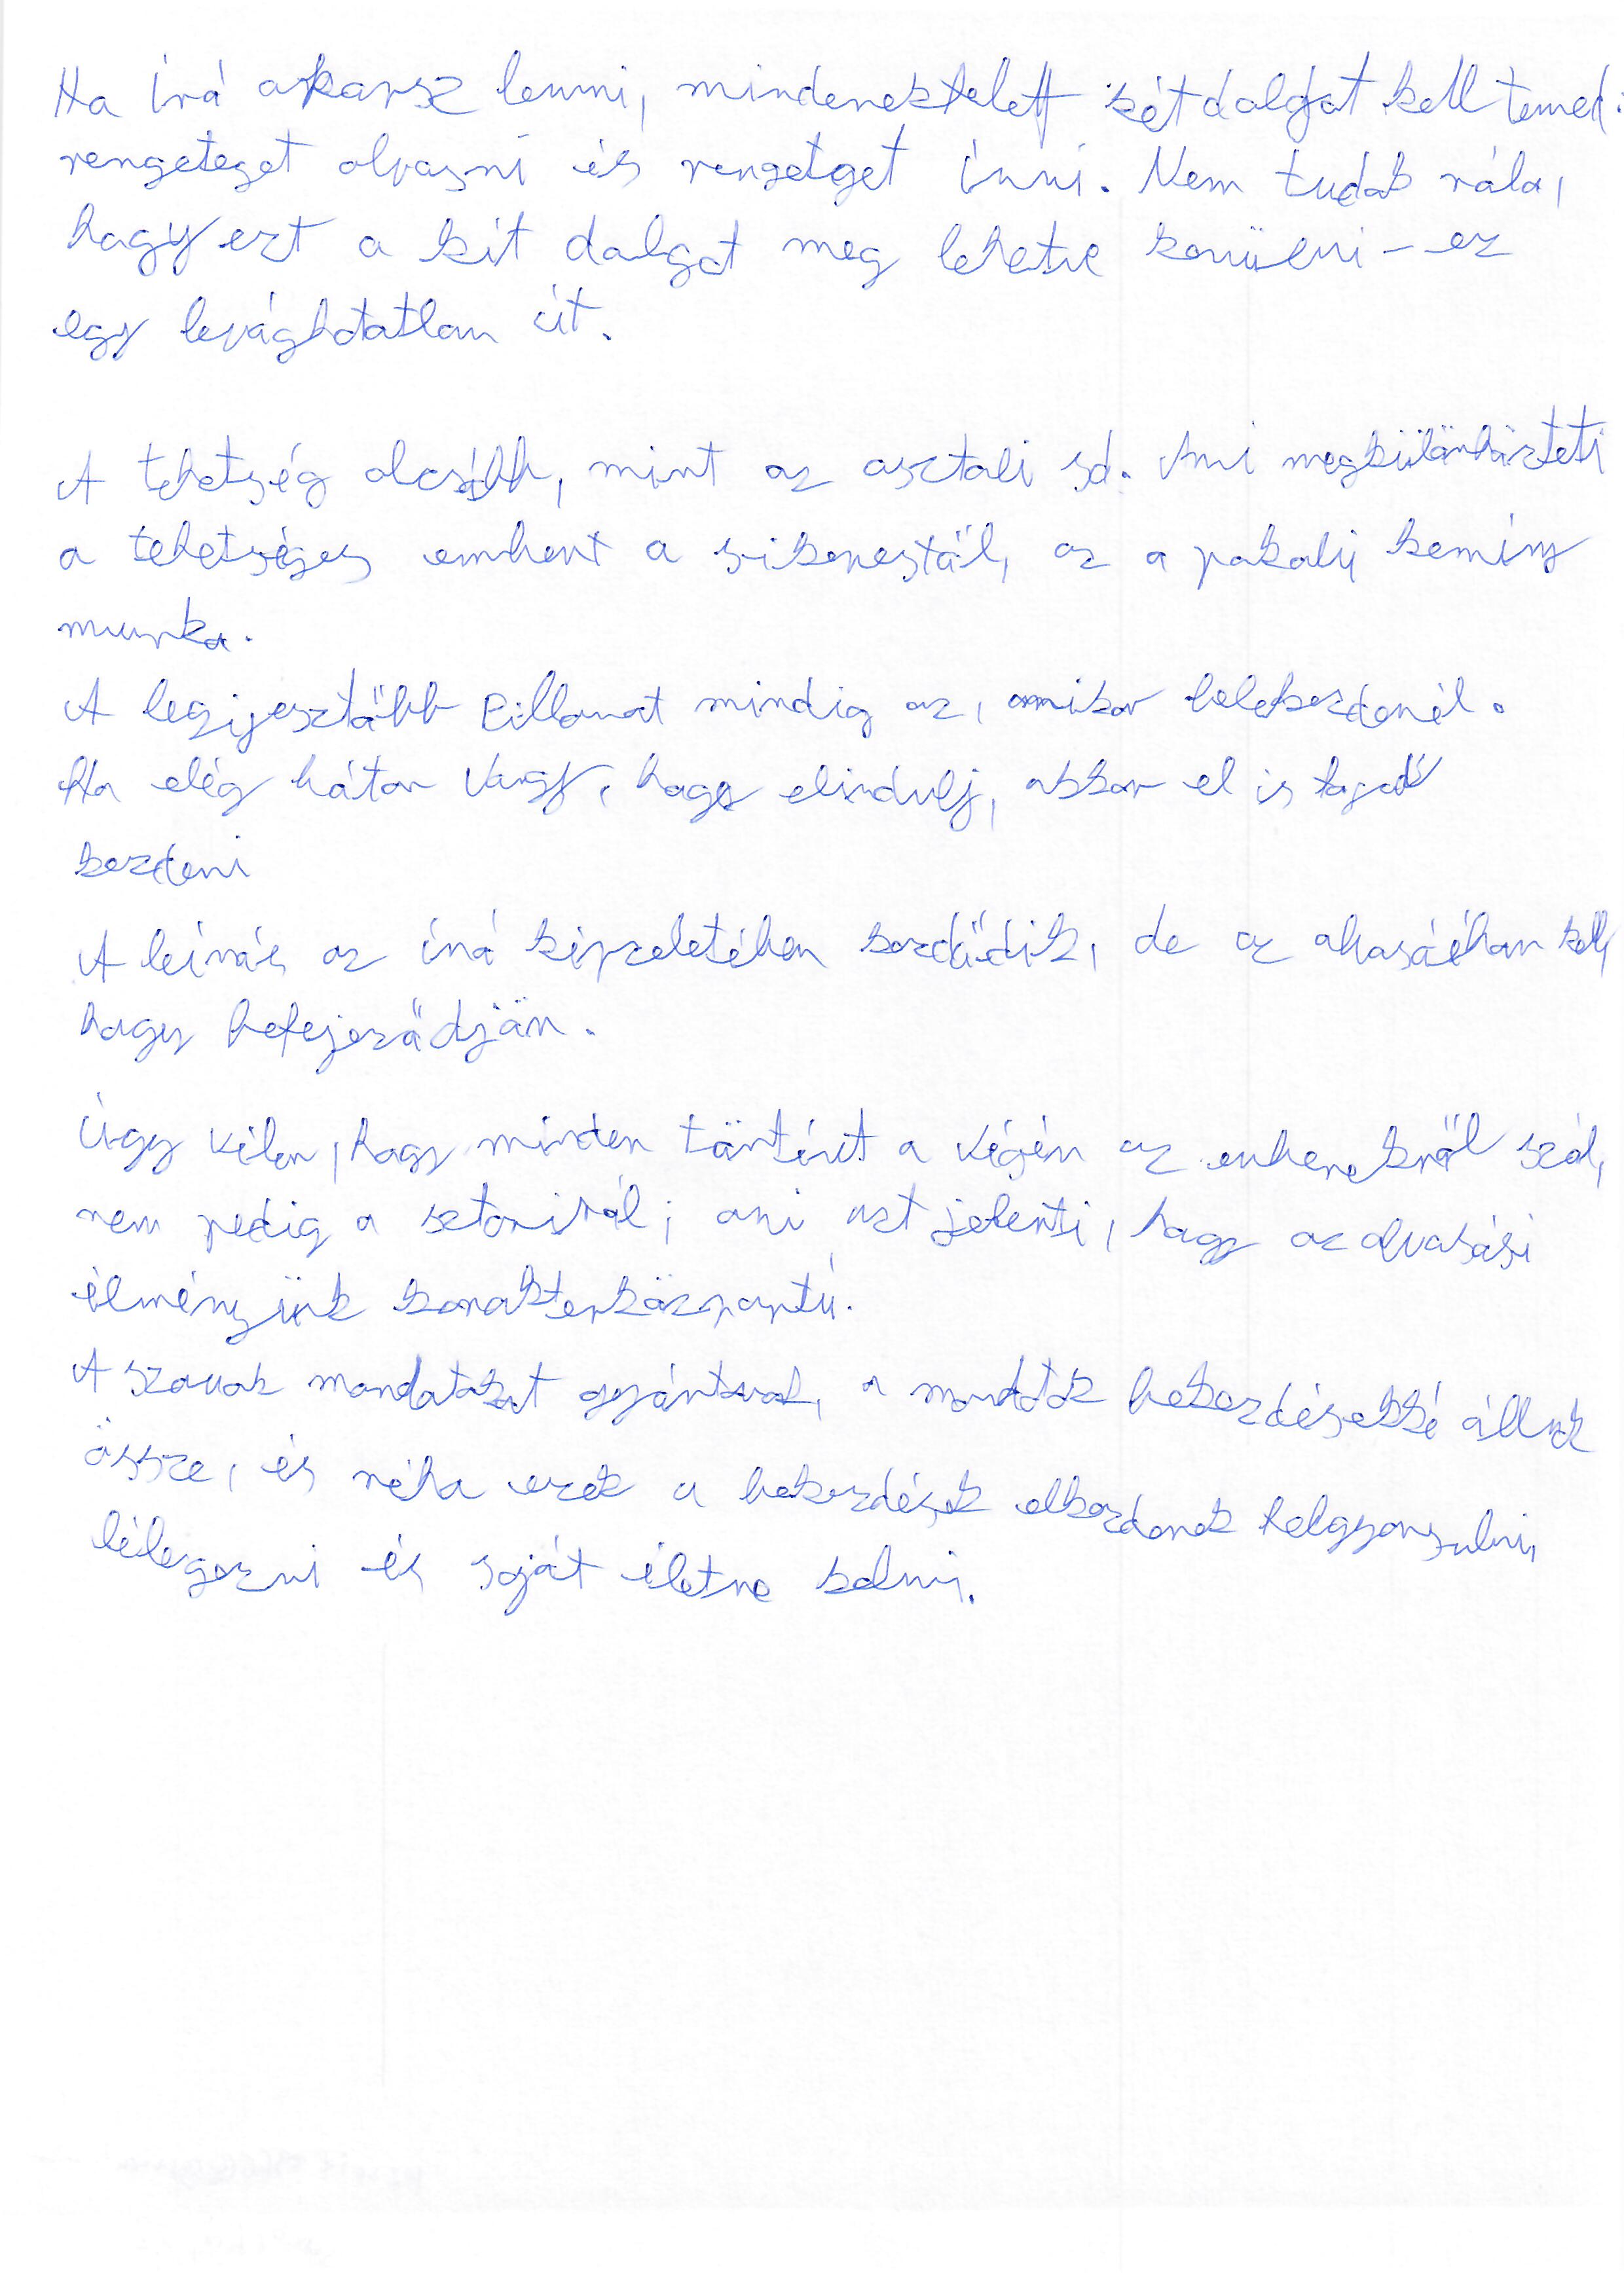 Ha író akarsz lenni, mindenekelett két dolgot kell tenned:
rengeteget olvasni és rengeteget írni. Nem tudok róla,
hogy ezt a két dolgot meg lehetne kerülni – ez
egy levághatatlan út.
A tehetség olcsóbb, mint az asztali só. Ami megkülönbözteti
a tehetséges embert a sikerestől, az a pokoli kemény
munka.
A legijesztőbb pillanat mindig az, amikor belekezdenél.
Ha elég bátor vagy, hogy elindulj, akkor el is fogod
kezdeni
A leírás az író képzeletében kezdődik, de az olvasóéban kell,
hogy befejeződjön.
Úgy vélem, hogy minden történet a végén az emberekről szól,
nem pedig a sztoriról; ami azt jelenti, hogy az olvasási
élményünk karakterközpontú.
A szavak mondatokat gyártanak, a mondatok bekezdésekké állnak
össze, és néha ezek a bekezdések elkezdenek felgyorsulni,
lélegezni és saját életre kelni.